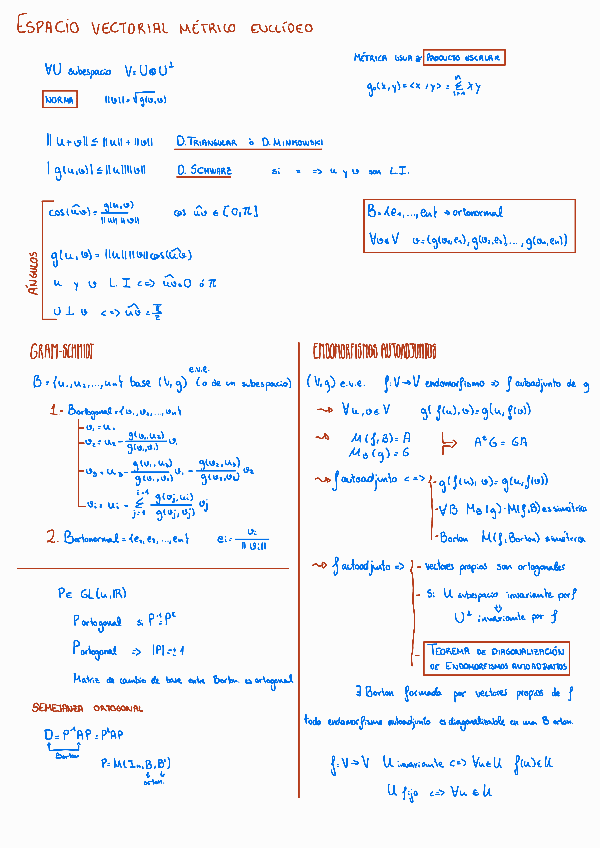 ESPACIO VECTORIAL MÉTRICO EUCLÍDEO
∀U subespacio V=U⊕U⊥
MÉTRICA USUAL PRODUCTO ESCALAR
g₀(x,y)=<x,y>=Σⁿᵢ₌₁ xy
NORMA ||v||=√g(v,v)
||u+v||≤||u||+||v|| D.TRIANGULAR o D.MINKOWSKI
|g(u,v)|≤||u||||v|| D. SCHWARZ si = => u y v son L.I.
ÁNGULOS
cos(uv)=g(u,v)/||u||||v|| cos uv ∈ [0,π]
g(u,v)=||u||||v||cos(uv)
u y v L.I <=> uv=0 ó π
u⊥v <=> uv=π/2
B={e₁,...,eₙ} → ortonormal
∀v∈V v=(g(v,e₁),g(v,e₂),...,g(v,eₙ))
GRAM-SCHMIDT
B={u₁,u₂,...,uₙ} base (V,g) e.v.e. (o de un subespacio)
1- Bortogonal={v₁,v₂,...,vₙ}
v₁=u₁
v₂=u₂-g(v₁,u₂)/g(v₁,v₁) v₁
v₃=u₃-g(v₁,u₃)/g(v₁,v₁) v₁-g(v₂,u₃)/g(v₂,v₂) v₂
vᵢ=uᵢ-Σⁱ⁻¹ⱼ₌₁ g(vⱼ,uᵢ)/g(vⱼ,vⱼ) vⱼ
2. Bortonormal={e₁,e₂,...,eₙ} eᵢ=vᵢ/||vᵢ||
P∈ GL(n,ℝ)
P ortogonal si P⁻¹=Pᵗ
P ortogonal => |P|=±1
Matriz de cambio de base entre Borton es ortogonal
SEMEJANZA ORTOGONAL
D=P⁻¹AP=PᵗAP
Borton
P=M(Iₙ,B,B')
orton.
ENDOMORFISMOS AUTOADJUNTOS
(V,g) e.v.e. f:V→V endomorfismo => f autoadjunto de g
∀u,v∈V g(f(u),v)=g(u,f(v))
M(f,B)=A
M_B(g)=G
AᵗG=GA
f autoadjunto <=>
-g(f(u),v)=g(u,f(v))
-∀B M_B(g)·M(f,B) es simétrica
-Borton M(f,Borton) simétrica
f autoadjunto =>
- vectores propios son ortogonales
- Si U subespacio invariante por f
U⊥ invariante por f
- TEOREMA DE DIAGONALIZACIÓN
DE ENDOMORFISMOS AUTOADJUNTOS
∃ Borton formada por vectores propios de f
todo endomorfismo autoadjunto es diagonalizable en una B orton.
f:V→V U invariante <=> ∀u∈U f(u)∈U
U fijo <=> ∀u∈U